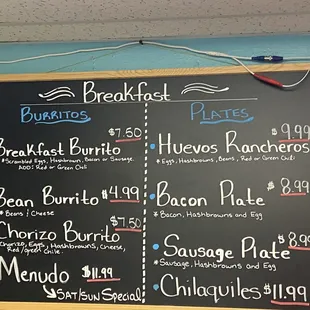 Breakfast
BURRITOS
$7.50
Breakfast Burrito
*Scrambled Eggs, Hashbrown, Bacon or Sausage.
ADD: Red or Green Chili
Bean Burrito $4.99
*Beans / Cheese
$7.50
Chorizo Burrito
Chorizo, Eggs, Hashbrowns, Cheese,
Red/green Chile.
Menudo $11.99
SAT/SUN Special
PLATES
$9.99
• Huevos Rancheros
*Eggs, Hashbrowns, Beans, Red or Green Chili
$8.99
• Bacon Plate
*Bacon, Hashbrowns and Egg
$8.99
• Sausage Plate
*Sausage, Hashbrowns and Egg
• Chilaquiles $11.99